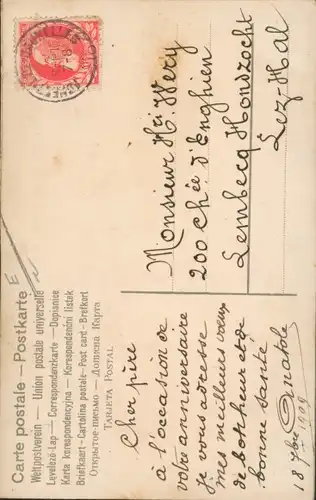 Carte postale — Postkarte
Weltpostverein — Union postale universelle
Levelező-Lap — Correspondenzkarte — Dopisnice
Karta korespondencyjna — Korespondenční lístek
Briefkaart — Cartolina postale — Post card — Brefkort
Открытое письмо — Дописна Карта
TARJETA POSTAL
Monsieur Hri Wery
200 chée d'Enghien
Lembecq Hondzocht
Lez-Hal
Cher père
à l'occasion de
votre anniversaire
je vous adresse
mes meilleurs voeux
de bonheur et de
bonne santé
Anatole
18 1909